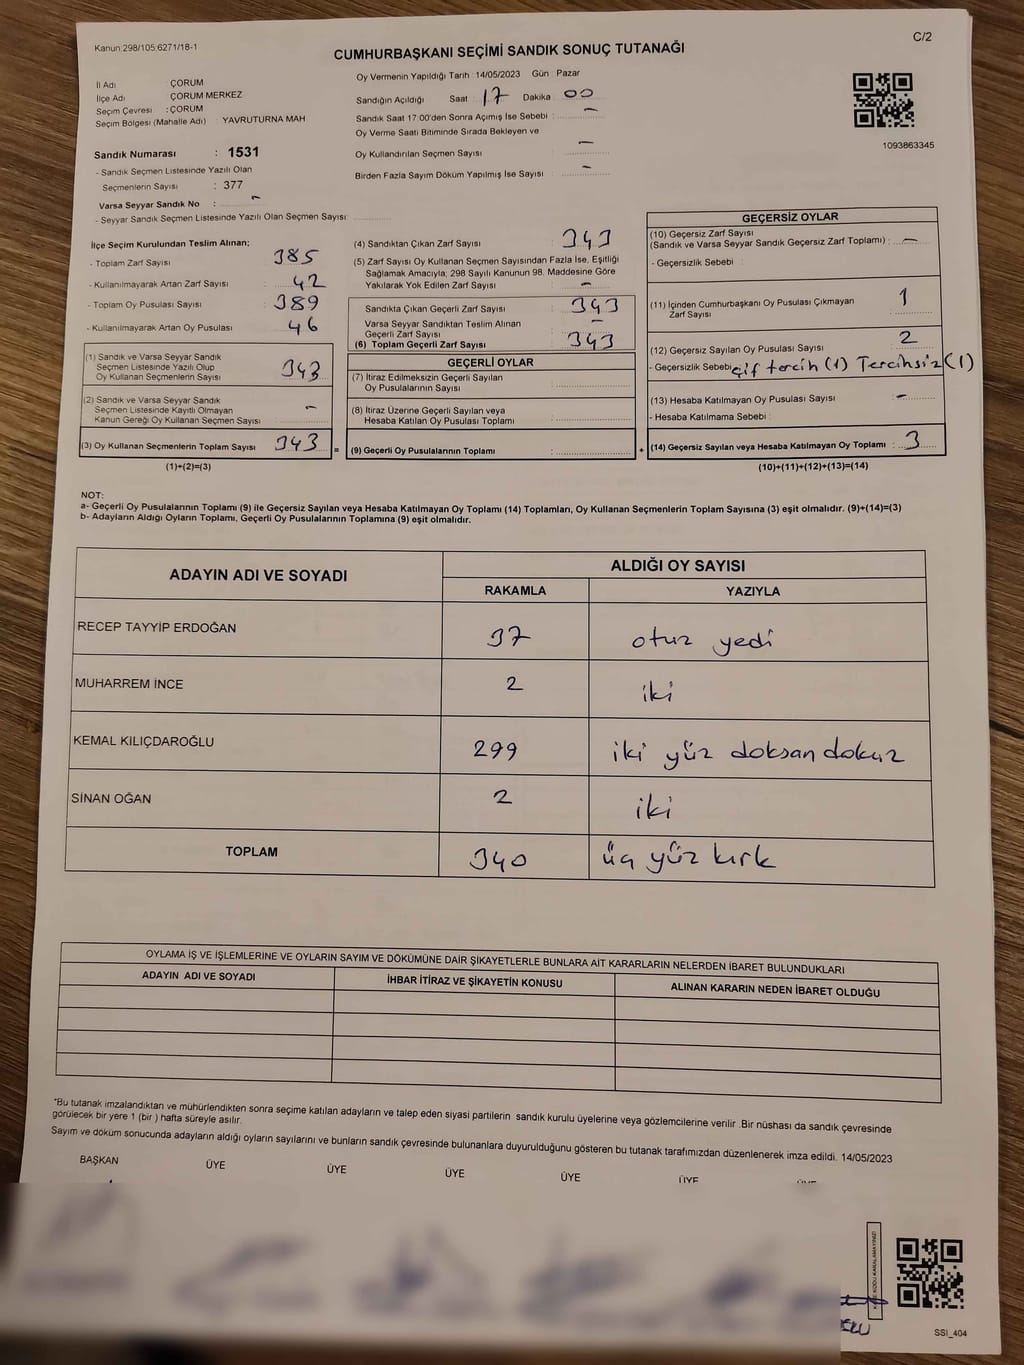 Kanun:298/105;6271/18-1
C/2
CUMHURBAŞKANI SEÇİMİ SANDIK SONUÇ TUTANAĞI
İl Adı : ÇORUM
İlçe Adı : ÇORUM MERKEZ
Seçim Çevresi : ÇORUM
Seçim Bölgesi (Mahalle Adı) : YAVRUTURNA MAH
Sandık Numarası : 1531
- Sandık Seçmen Listesinde Yazılı Olan
Seçmenlerin Sayısı : 377
Varsa Seyyar Sandık No : -
- Seyyar Sandık Seçmen Listesinde Yazılı Olan Seçmen Sayısı:
Oy Vermenin Yapıldığı Tarih :14/05/2023 Gün : Pazar
Sandığın Açıldığı Saat : 17 Dakika : 00
Sandık Saat 17:00'den Sonra Açımış İse Sebebi : -
Oy Verme Saati Bitiminde Sırada Bekleyen ve
Oy Kullandırılan Seçmen Sayısı : -
Birden Fazla Sayım Döküm Yapılmış İse Sayısı : -
1093863345
İlçe Seçim Kurulundan Teslim Alınan;
- Toplam Zarf Sayısı : 385
- Kullanılmayarak Artan Zarf Sayısı : 42
- Toplam Oy Pusulası Sayısı : 389
- Kullanılmayarak Artan Oy Pusulası : 46
(1) Sandık ve Varsa Seyyar Sandık
Seçmen Listesinde Yazılı Olup
Oy Kullanan Seçmenlerin Sayısı : 343
(2) Sandık ve Varsa Seyyar Sandık
Seçmen Listesinde Kayıtlı Olmayan
Kanun Gereği Oy Kullanan Seçmen Sayısı : -
(3) Oy Kullanan Seçmenlerin Toplam Sayısı : 343 =
(1)+(2)=(3)
(4) Sandıktan Çıkan Zarf Sayısı : 343
(5) Zarf Sayısı Oy Kullanan Seçmen Sayısından Fazla İse, Eşitliği
Sağlamak Amacıyla; 298 Sayılı Kanunun 98. Maddesine Göre
Yakılarak Yok Edilen Zarf Sayısı : -
Sandıkta Çıkan Geçerli Zarf Sayısı : 343
Varsa Seyyar Sandıktan Teslim Alınan
Geçerli Zarf Sayısı : -
(6) Toplam Geçerli Zarf Sayısı : 343
GEÇERLİ OYLAR
(7) İtiraz Edilmeksizin Geçerli Sayılan
Oy Pusulalarının Sayısı :
(8) İtiraz Üzerine Geçerli Sayılan veya
Hesaba Katılan Oy Pusulası Toplamı :
(9) Geçerli Oy Pusulalarının Toplamı : +
GEÇERSİZ OYLAR
(10) Geçersiz Zarf Sayısı
(Sandık ve Varsa Seyyar Sandık Geçersiz Zarf Toplamı) : -
- Geçersizlik Sebebi :
(11) İçinden Cumhurbaşkanı Oy Pusulası Çıkmayan
Zarf Sayısı : 1
(12) Geçersiz Sayılan Oy Pusulası Sayısı : 2
- Geçersizlik Sebebi çif tercih (1) Tercihsiz (1)
(13) Hesaba Katılmayan Oy Pusulası Sayısı : -
- Hesaba Katılmama Sebebi :
(14) Geçersiz Sayılan veya Hesaba Katılmayan Oy Toplamı : 3
(10)+(11)+(12)+(13)=(14)
NOT:
a- Geçerli Oy Pusulalarının Toplamı (9) ile Geçersiz Sayılan veya Hesaba Katılmayan Oy Toplamı (14) Toplamları, Oy Kullanan Seçmenlerin Toplam Sayısına (3) eşit olmalıdır. (9)+(14)=(3)
b- Adayların Aldığı Oyların Toplamı, Geçerli Oy Pusulalarının Toplamına (9) eşit olmalıdır.
ADAYIN ADI VE SOYADI ALDIĞI OY SAYISI
RAKAMLA YAZIYLA
RECEP TAYYİP ERDOĞAN 37 otuz yedi
MUHARREM İNCE 2 iki
KEMAL KILIÇDAROĞLU 299 iki yüz doksan dokuz
SİNAN OĞAN 2 iki
TOPLAM 340 üç yüz kırk
OYLAMA İŞ VE İŞLEMLERİNE VE OYLARIN SAYIM VE DÖKÜMÜNE DAİR ŞİKAYETLERLE BUNLARA AİT KARARLARIN NELERDEN İBARET BULUNDUKLARI
ADAYIN ADI VE SOYADI İHBAR İTİRAZ VE ŞİKAYETİN KONUSU ALINAN KARARIN NEDEN İBARET OLDUĞU
*Bu tutanak imzalandıktan ve mühürlendikten sonra seçime katılan adayların ve talep eden siyasi partilerin sandık kurulu üyelerine veya gözlemcilerine verilir .Bir nüshası da sandık çevresinde
görülecek bir yere 1 (bir ) hafta süreyle asılır.
Sayım ve döküm sonucunda adayların aldığı oyların sayılarını ve bunların sandık çevresinde bulunanlara duyurulduğunu gösteren bu tutanak tarafımızdan düzenlenerek imza edildi. 14/05/2023
BAŞKAN ÜYE ÜYE ÜYE ÜYE ÜYE ÜYE
KARE KODU KARALAMAYINIZ!
SSI_404